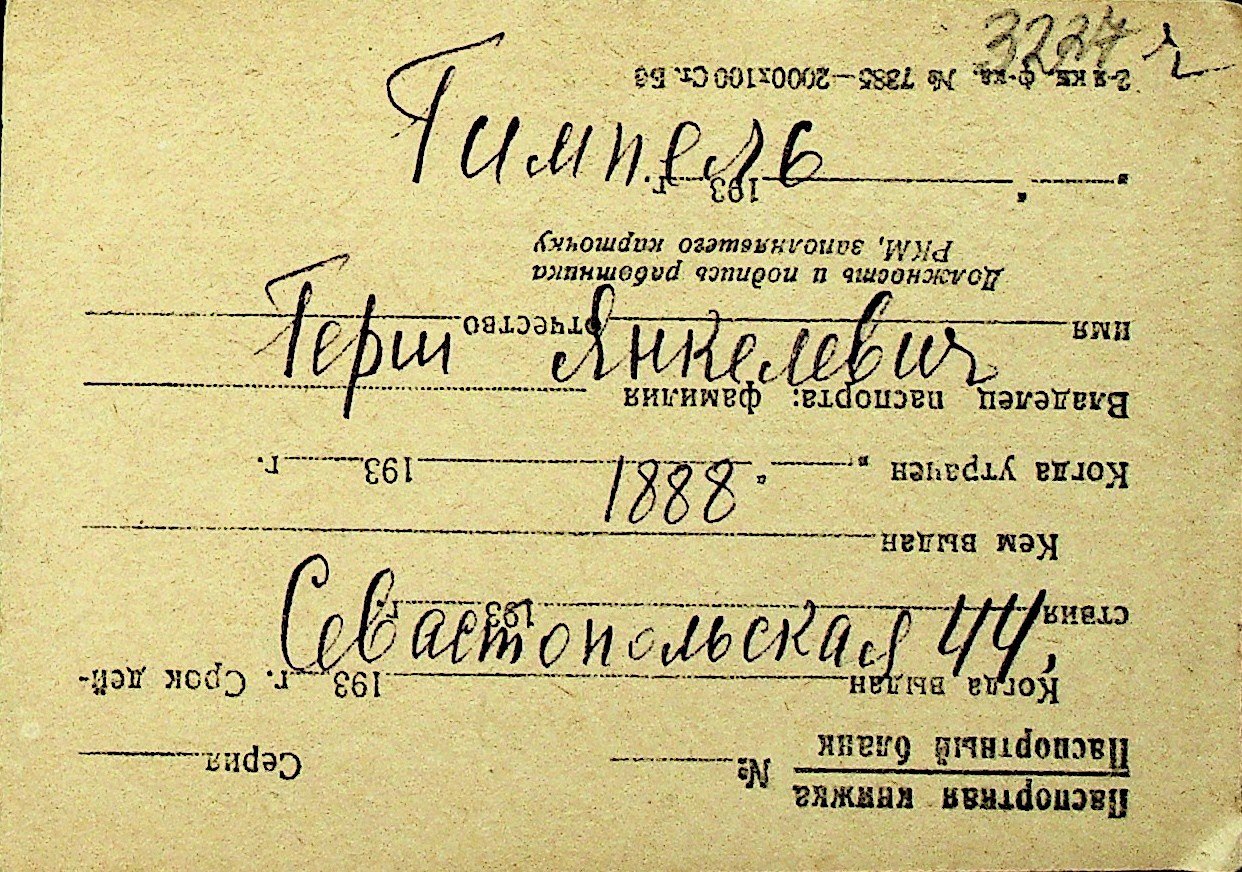 3237 г
Гимпель
Герш Янкелевич
1888
Севастопольская 44,
Паспортная книжка
Паспортный бланк
№ Серия
Когда выдан 193 г. Срок дей-
ствия 193 г.
Кем выдан
Когда утрачен „ “ 193 г.
Владелец паспорта: фамилия
имя отчество
Должность и подпись работника
РКМ, заполняющего карточку
„ “ 193 г.
2-я кн. ф-ка. № 7385—2000х100 Ст. Бб